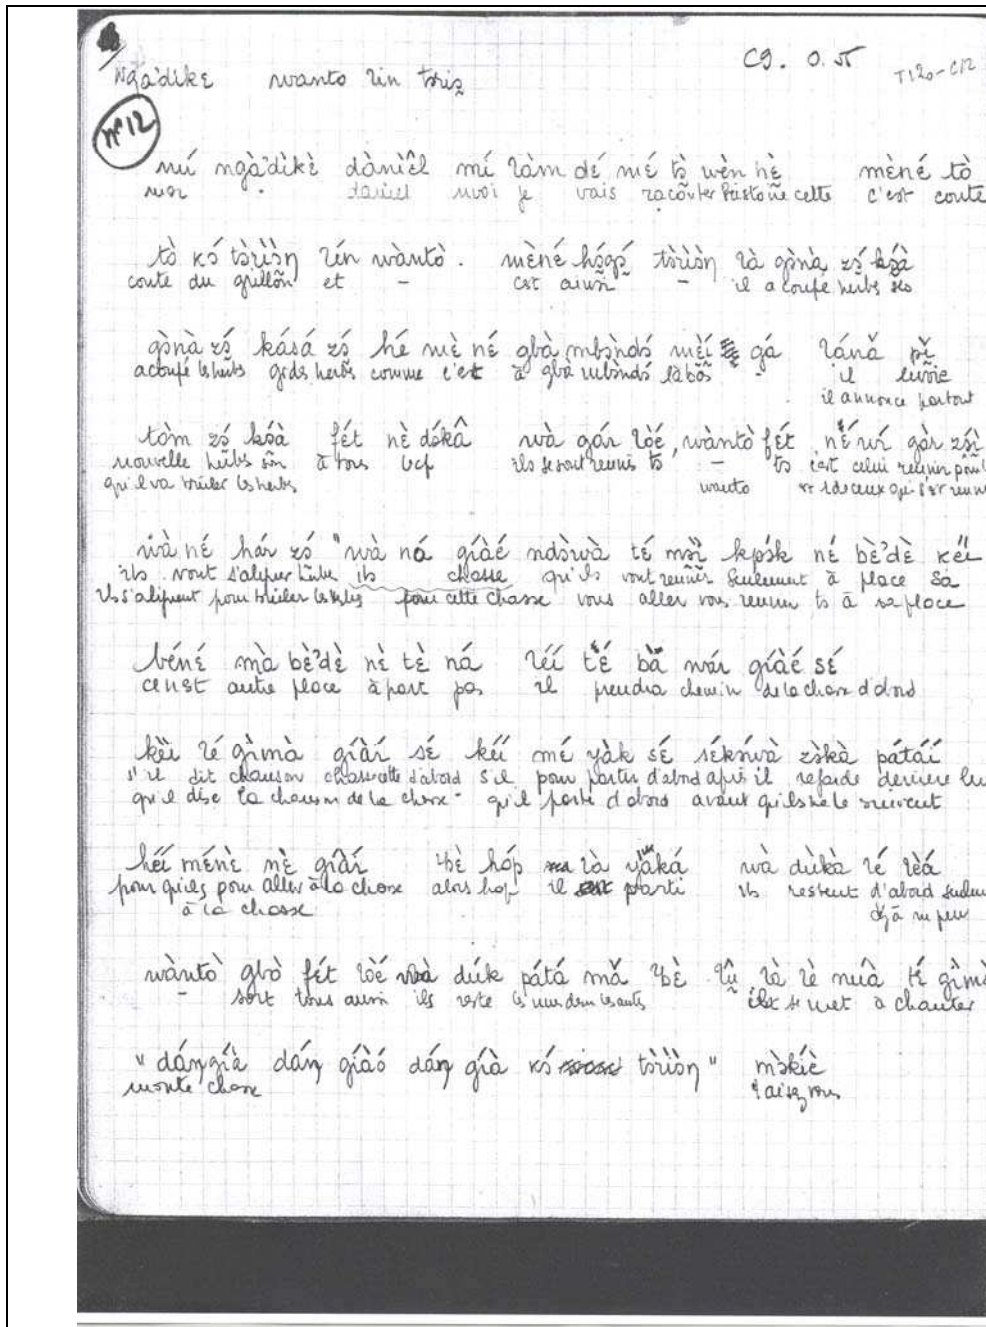 C9. 0. 55 T120-C12
Ngaɗike wanto ʔin tɔriɔ̃
n° 12
mí ngàʔdìkè dànìɛ̂l mí ʔàm dé mɛ́ tò wèn hè mènɛ́ tò
mon daniel moi je vais raconter histoire cette c'est conte
tò kɔ́ tɔ̀rìɔ̀ŋ ʔín wàntò. mènɛ́ hɔ́gɔ́ tɔ̀rìɔ̀ŋ ʔà gɔ̀nà zɔ́ kɔ́à
conte du grillon et - cst ainsi - il a coupé herbs ses
gɔ̀nà zɔ́ kásá zɔ́ hé mè né gbà mbɔ̀ndɔ́ mɛ̀í gá ʔánǎ pǐ
a coupé les herbs grds herbs comme c'est à gba mbɔ̀ndɔ́ làbàs - il envoie
il annonce partout
tòm zɔ́ kɔ́à fét nè dɔ́kâ wà gár lòé, wàntò fét né wí gàr zɔ́ì
nouvelle herbes son à tous bcp ils se sont réunis ts - ts c'est celui réunir pour
qu'il va brûler les herbes wanto
wà né hár zɔ́ "wà ná gíàé ndɔ̀wà té mɔ̀ì kpɔ́k né bèʔdè kɛ́ì
ils vont s'aligner herbe ils chasse qu'ils vont réunir seulement à place sa
ils s'alignent pour brûler les herbes pour cette chasse vous aller vous réunir ts à sa place
béné mà bèʔdè nè tè ná ʔɛ́í té bà wár gíàé sé
ce n'est autre place à part pas il prendra chemin de la chasse d'abord
kɛ̀i ʔé gìmà gíàí sé kɛ́i mé yàk sé sékɔ́wà zɔ̀kà pátáí
s'il dit chanson chasse cette d'abord s'il pour partir d'abord après il regarde derrière lui
qu'il dise la chanson de la chasse - qu'il parte d'abord avant qu'ils ne le suivent
héí ménè nè gíàí ʔbè hóp ʔà yàká wà dùkà ʔé ʔèá
pour qu'ils pour aller à la chasse alors hop il parti ils restent d'abord seulem
à la chasse déjà un peu
wàntò gbò fét lòé wà dúk pátá mǎ ʔbè ʔà ʔè múà té gìmà
- sort tous aussi ils reste les uns dern les autres il se met à chanter
"dáŋgíà dáŋ gíàó dáŋ gíà kɔ́ tɔ̀rìɔ̀ŋ" mɔ̀kíè
monte chasse taisez vous